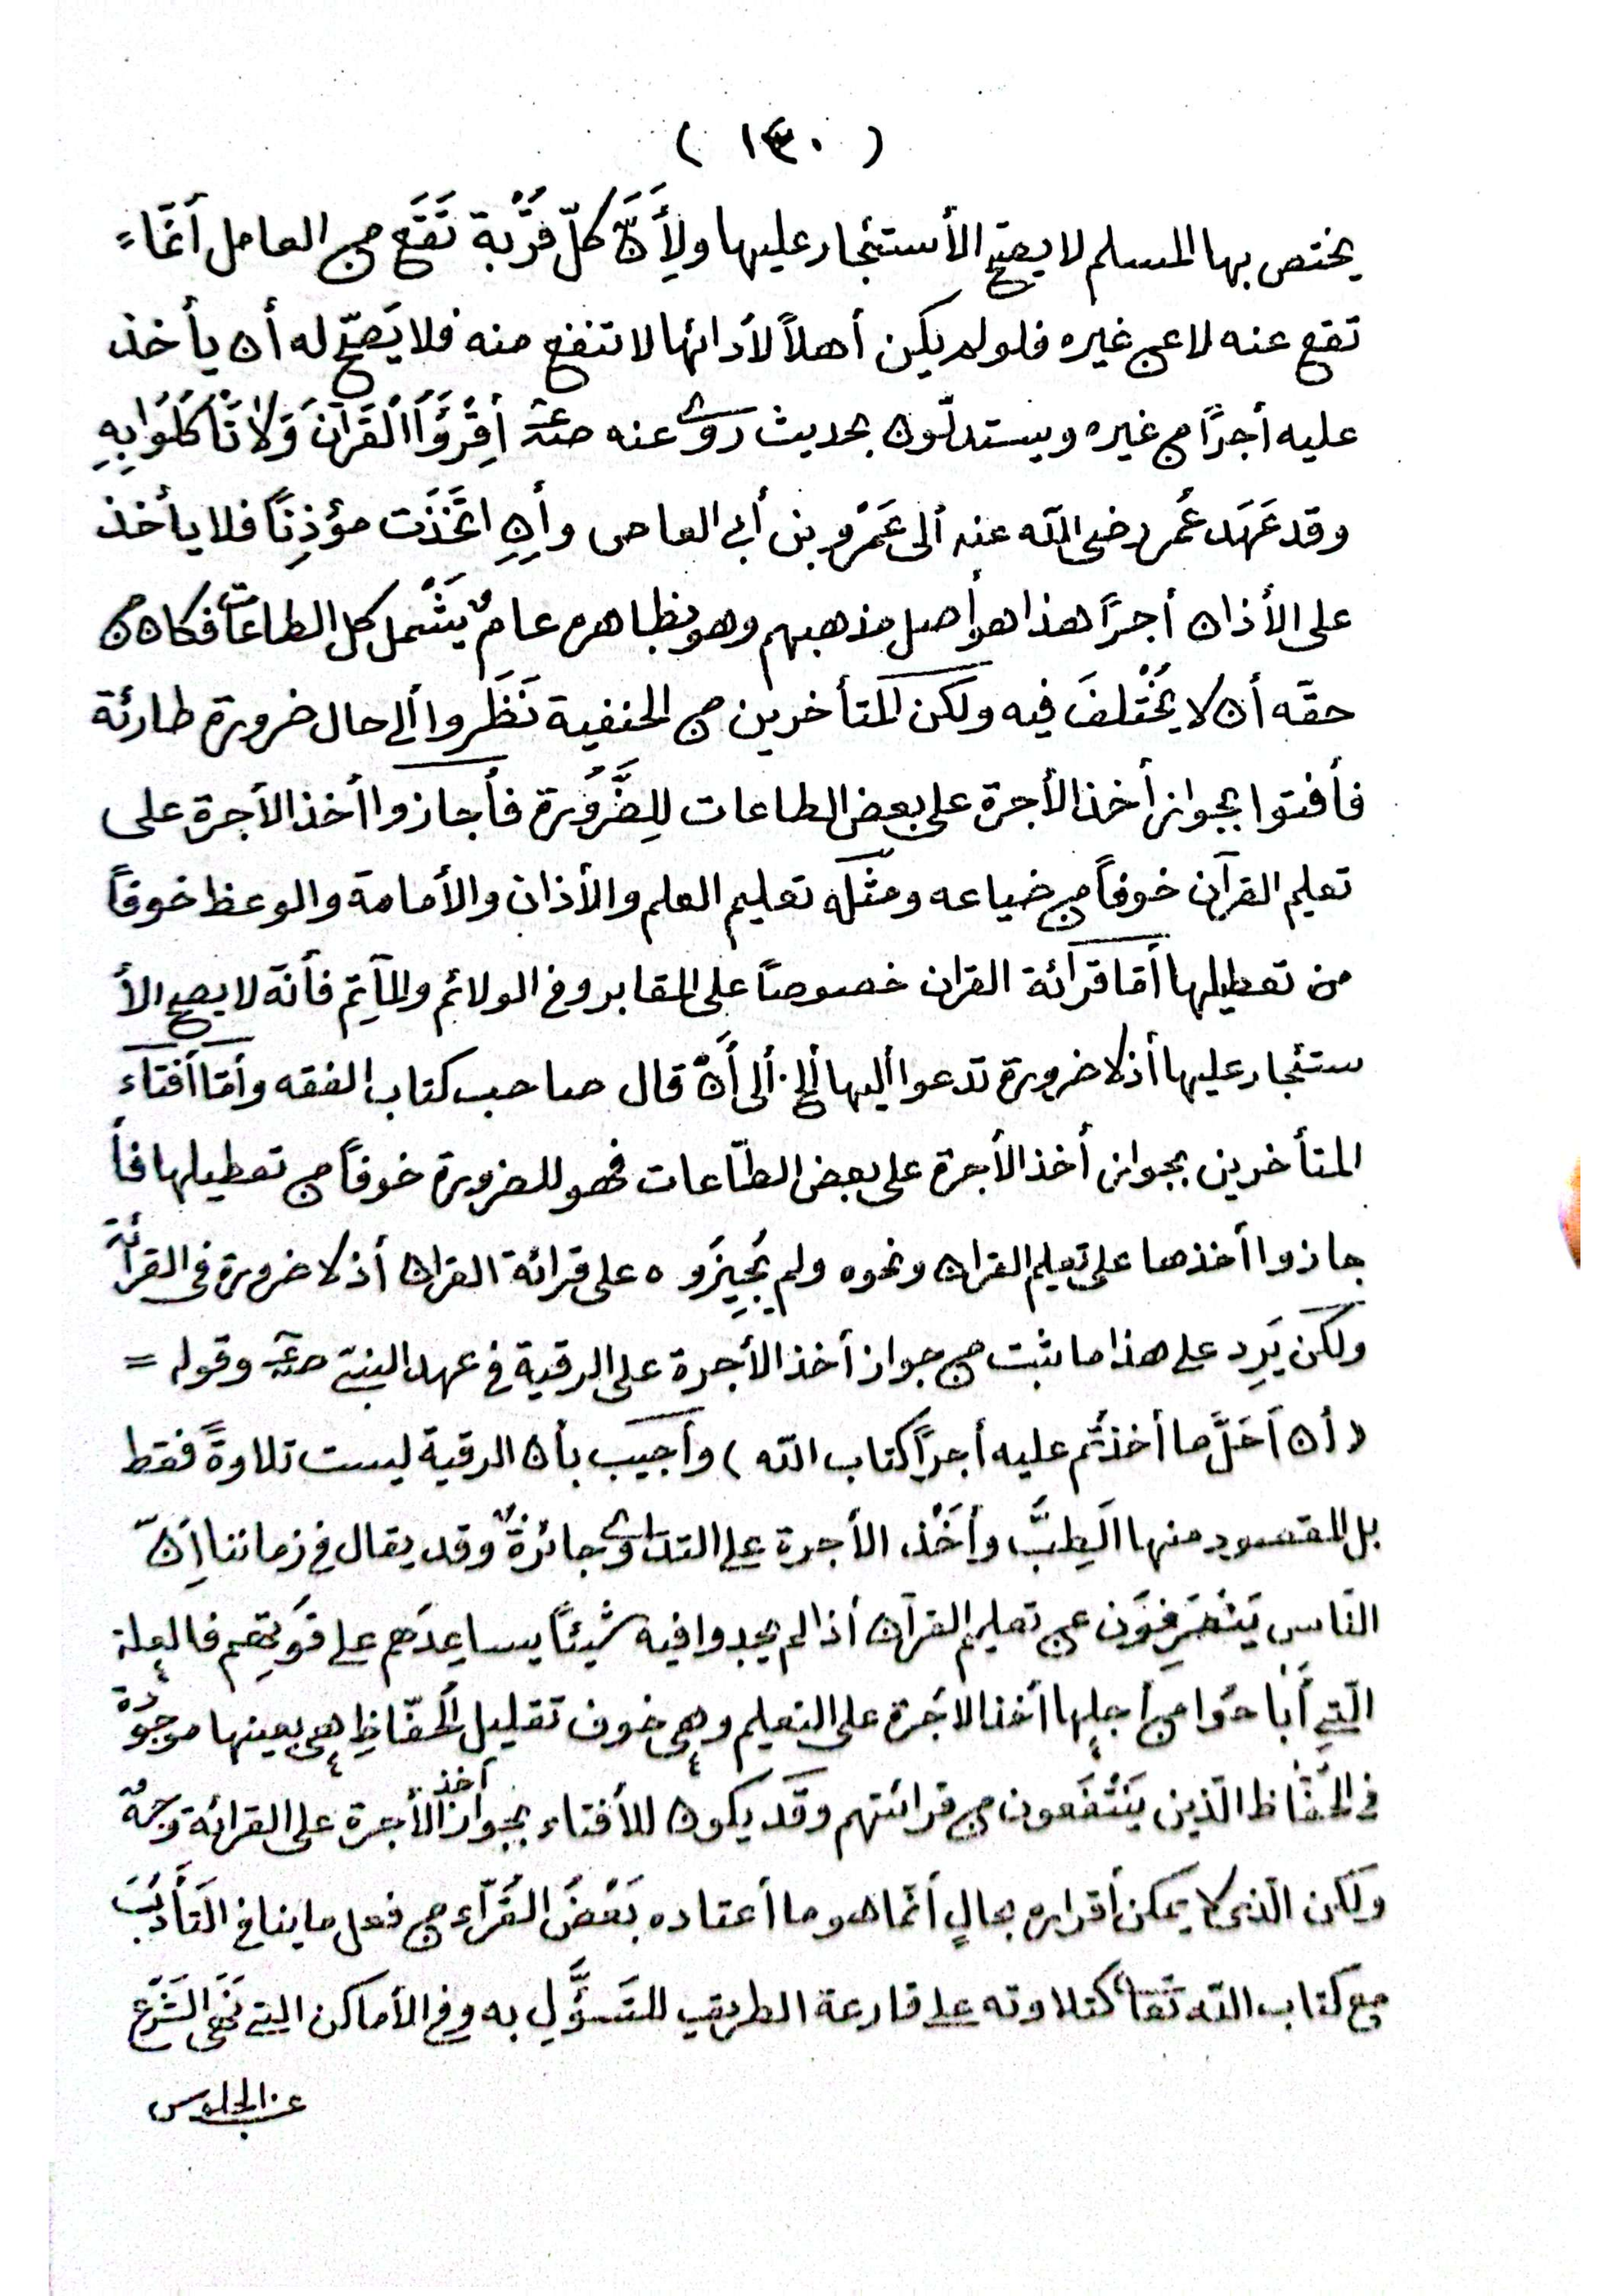 ( ١٣٠ )
يختص بها المسلم لا يصح الأستئجار عليها ولِأَنَّ كلّ قُرْبة تَقَع من العامل أنّماء
تقع عنه لا عن غيره فلو لم يكن أهلاً لأدائها لا تنفع منه فلا يَصحّ له أن يأخذ
عليه أجراً من غيره ويستدلّون بحديث روى عنه صلعم أِقْرَؤُا الْقُرآنَ وَلاٰ تَأْكُلُوا بِهِ
وقد عَهَد عُمر رضى الله عنه ألى عَمْرو بن أبى العاص وأِنِ اتَّخَذْت مؤذِناً فلا يأخذ
على الأذان أجراً هذا هو أصل مذهبهم وهو بظاهره عامٌ يَشْمل كل الطاعات فكان من
حقّه أن لا يُخْتلفَ فيه ولكن المتأخرين من الحنفية نَظَروا ألى حال ضرورة طارئة
فأفتوا بجواز أخذ الأجرة على بعض الطاعات للِضَّرُورة فأجازوا أخذ الأجرة على
تعليم القرآن خوفاً من ضياعه ومثله تعليم العلم والأذان والأمامة والوعظ خوفاً
من تعطيلها أمّا قرآئة القران خصوصاً على المقابر وفى الولائم والمآتِم فأنّه لا يصح الأ
ستئجار عليها أذ لا ضرورة تدعوا أليها ألخ. ألى أَنْ قال صاحب كتاب الفقه وأمّا أفتاء
المتأخرين بجواز أخذ الأجرة على بعض الطّاعات فهو للضرورة خوفاً من تعطيلها فأ
جازوا أخذها على تعليم القران ونحوه ولم يُجِيزُوه على قرائة القران أذ لا ضرورة فى القرائة
ولكن يَرِد على هذا ما ثبت من جواز أخذ الأجرة على الرقية فى عهد النبىّ صلعم وقوله =
( أن اَحَلَّ ما أخذتُم عليه أجراً كتاب الله ) وأجيب بأن الرقية ليست تلاوةً فقط
بل المقصود منها الَطِبَّ وأخْذ الأجرة على التداوى جائزةٌ وقد يقال فى زماننا أِنَّ
النّاس يَنْصَرِفوَن عن تعليم القرآن أذا لم يجدوا فيه شيئاً يساعِدَهم على قوَتِهم فالعلة
الّتى أَبا حوُا من أجلها أخذ الاجُرة على التعليم وهى خوف تقليل الحُفّاظِ هى بعينها موجوُدة
فى الحُفّاظ الّذين يَنْتَفَعون من قرائتهم وقَد يكون للأفتاء بجواز أخذ الأجرة على القرائة وجهٌ
ولكن الّذى لا يمكن أقراره بحالٍ أنّما هو ما أعتاده بَعْضُ القُرّآء من فعل ما ينافى التَأَدُّبَ
مع كتاب الله تَعٰا كتلاوته على قارعة الطريق للتَسَوُّلِ به وفى الأماكن التى نَهَى الشَرْع
عن الجلوس